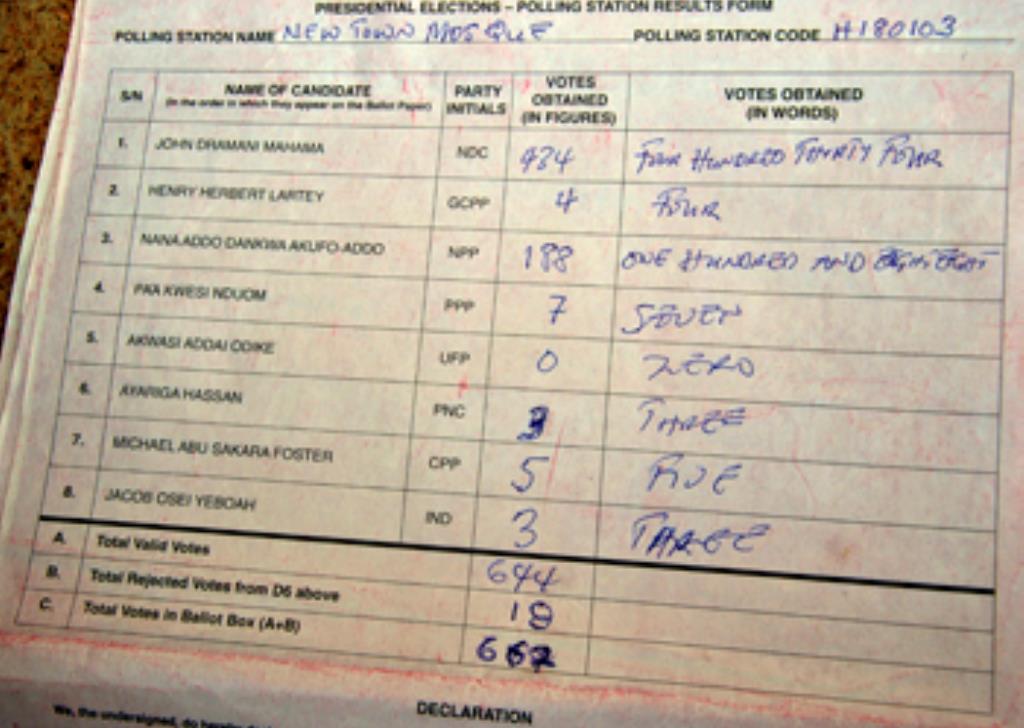 PRESIDENTIAL ELECTIONS – POLLING STATION RESULTS FORM
POLLING STATION NAME NEW TOWN MOSQUE POLLING STATION CODE H180103
S/N NAME OF CANDIDATE (in the order in which they appear on the Ballot Paper) PARTY INITIALS VOTES OBTAINED (IN FIGURES) VOTES OBTAINED (IN WORDS)
1. JOHN DRAMANI MAHAMA NDC 434 FOUR HUNDRED THIRTY FOUR
2. HENRY HERBERT LARTEY GCPP 4 FOUR
3. NANA ADDO DANKWA AKUFO-ADDO NPP 188 ONE HUNDRED AND EIGHTY EIGHT
4. PAA KWESI NDUOM PPP 7 SEVEN
5. AKWASI ADDAI ODIKE UFP 0 ZERO
6. AYARIGA HASSAN PNC 3 THREE
7. MICHAEL ABU SAKARA FOSTER CPP 5 FIVE
8. JACOB OSEI YEBOAH IND 3 THREE
A. Total Valid Votes 644
B. Total Rejected Votes from D6 above 18
C. Total Votes in Ballot Box (A+B) 662
DECLARATION
We, the undersigned, do hereby